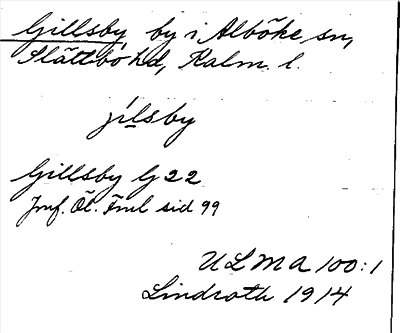 Gillsby by i Alböke sn,
Slättbo hd, Kalm. l.
jílsby
Gillsby G 22
Jmf. Öl. Fnl sid 99
ULMA 100:1
Lindroth 1914